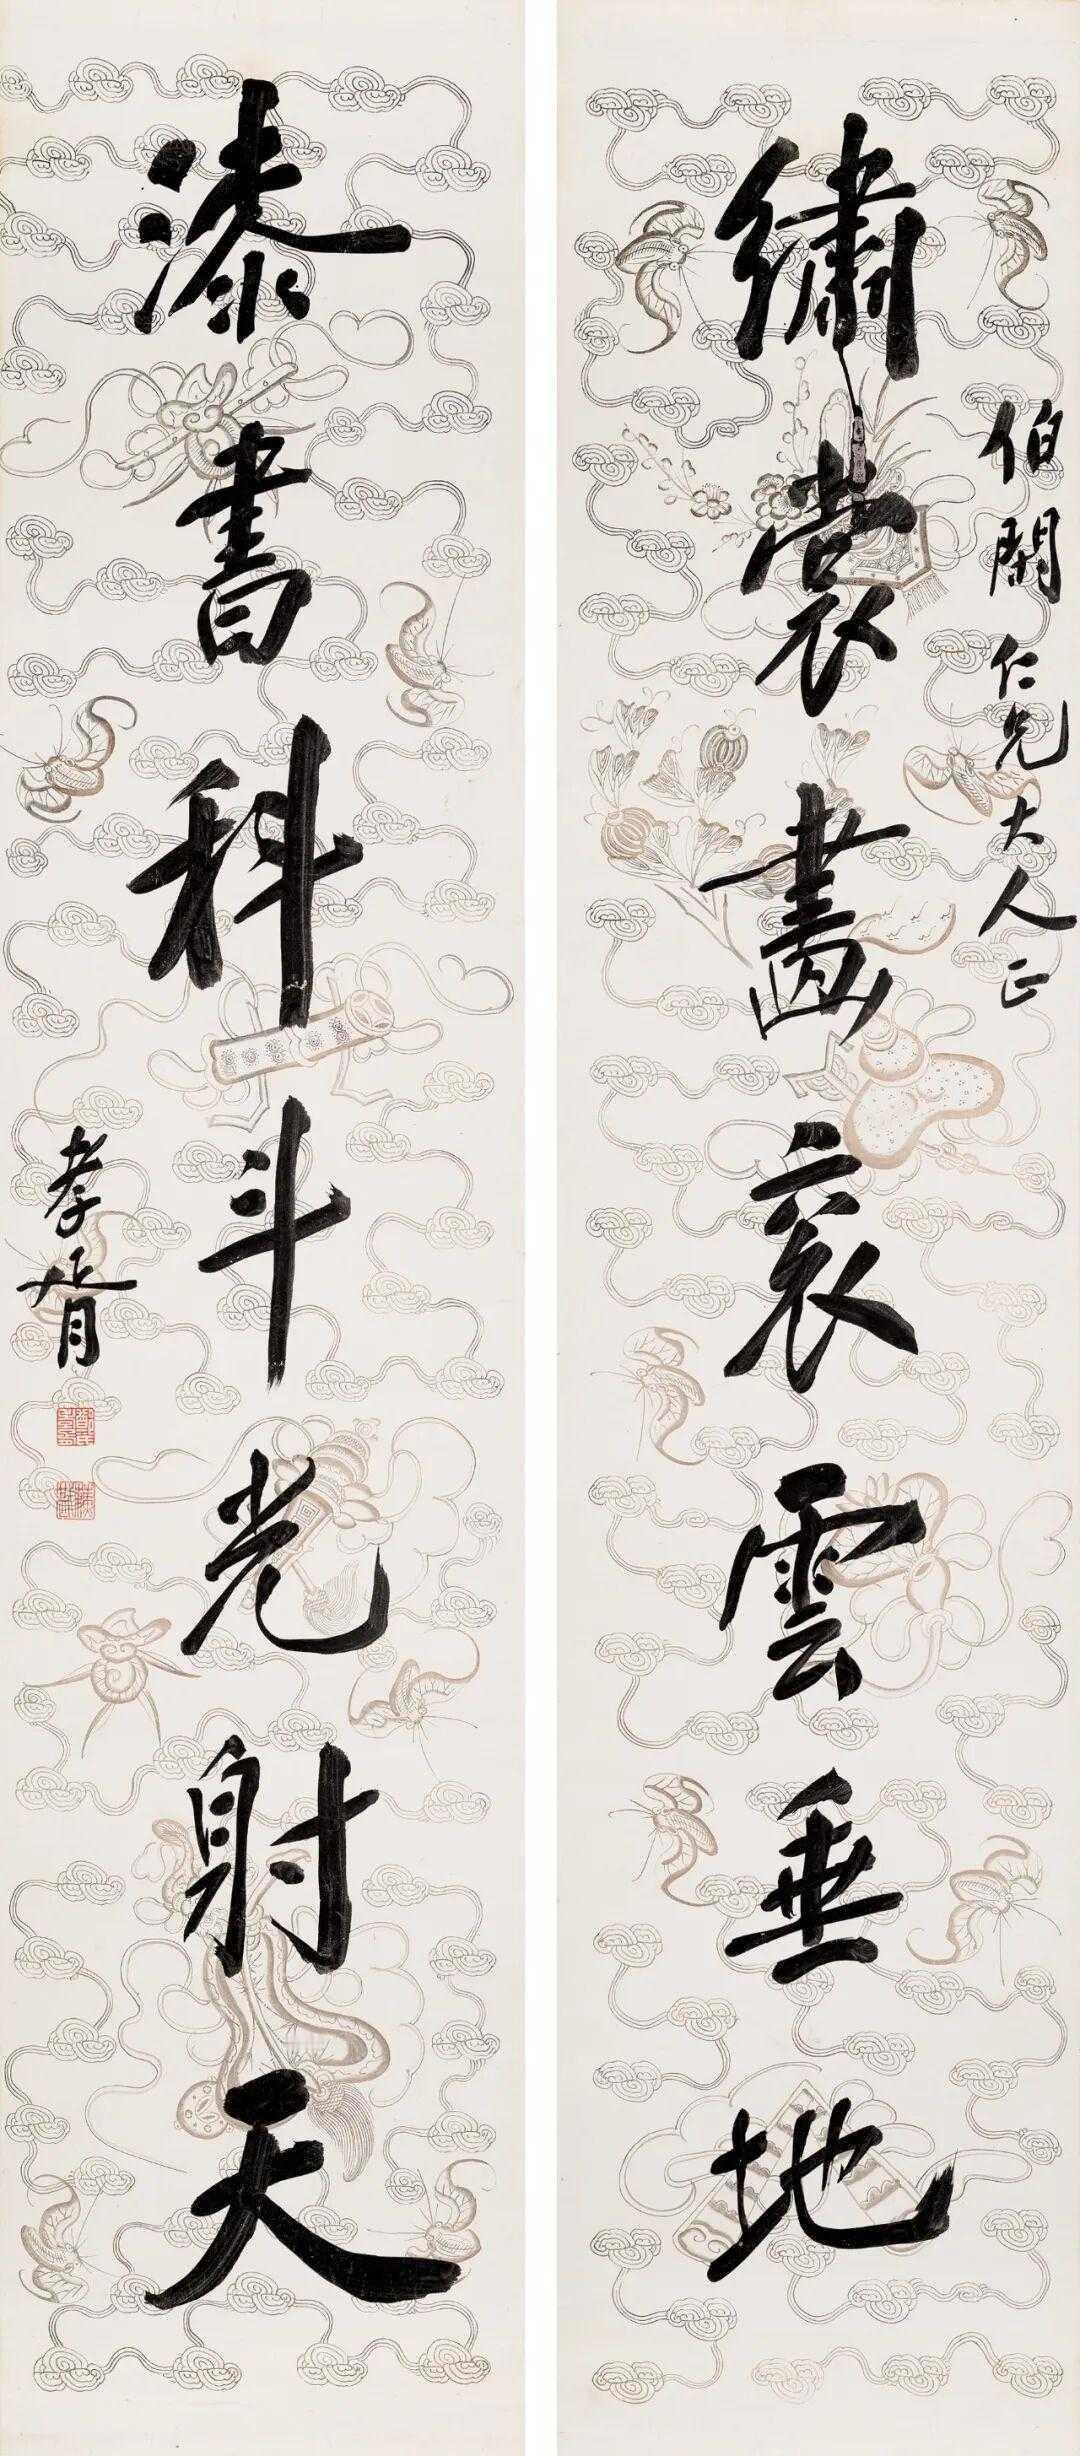 伯閑仁兄大人正
繡裳畫衮雲垂地
漆書科斗光射天
孝胥